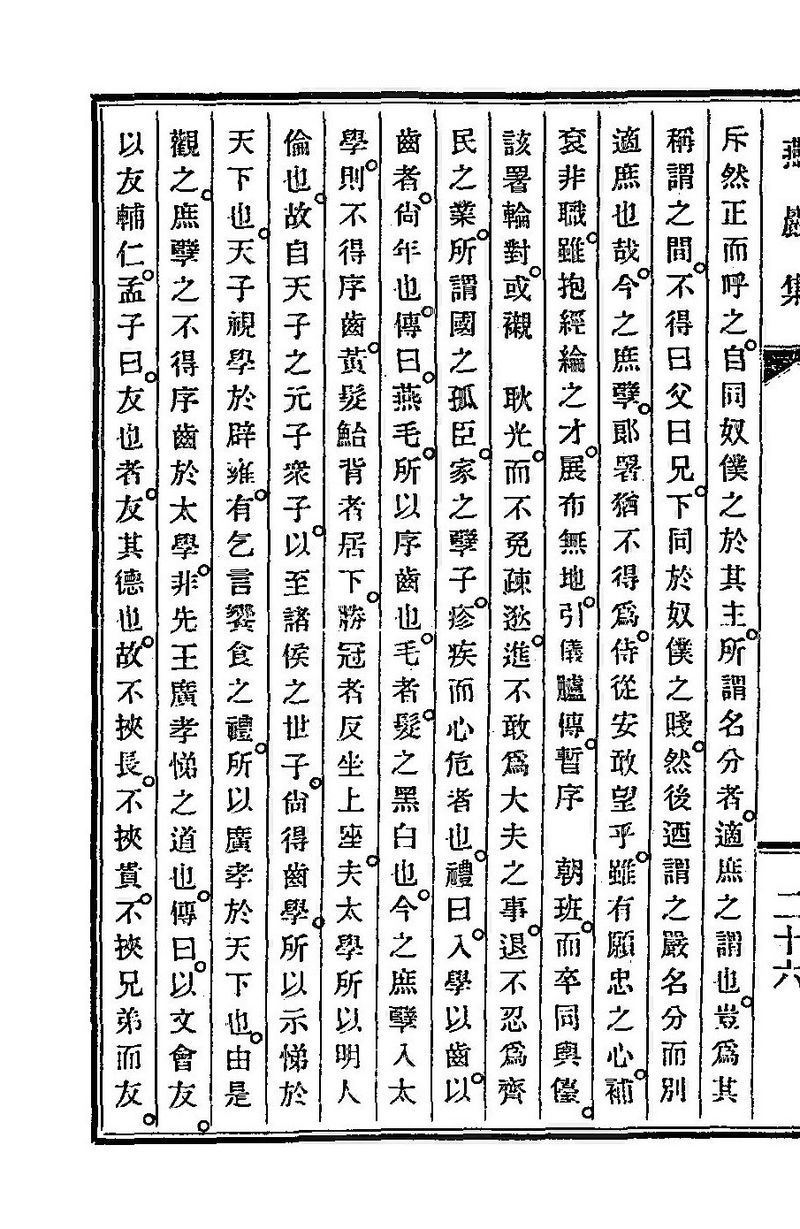 燕巖集
二十六
斥然正而呼之。自同奴僕之於其主。所謂名分者。適庶之謂也。豈爲其
稱謂之間。不得曰父曰兄。下同於奴僕之賤。然後迺謂之嚴名分而別
適庶也哉。今之庶孼。郞署猶不得爲侍從。安敢望乎。雖有願忠之心。補
袞非職。雖抱經綸之才。展布無地。引儀臚傳。暫序 朝班。而卒同輿儓。
該署輪對。或襯 耿光。而不免疎逖。進不敢爲大夫之事。退不忍爲齊
民之業。所謂國之孤臣。家之孼子。疹疾而心危者也。禮曰。入學以齒。以
齒者。尙年也。傳曰。燕毛。所以序齒也。毛者。髮之黑白也。今之庶孼入太
學。則不得序齒。黃髮鮐背者居下。勝冠者反坐上座。夫太學所以明人
倫也。故自天子之元子衆子。以至諸侯之世子。尙得齒學。所以示悌於
天下也。天子視學於辟雍。有乞言饗食之禮。所以廣孝於天下也。由是
觀之。庶孼之不得序齒於太學。非先王廣孝悌之道也。傳曰。以文會友。
以友輔仁。孟子曰。友也者。友其德也。故不挾長。不挾貴。不挾兄弟而友。